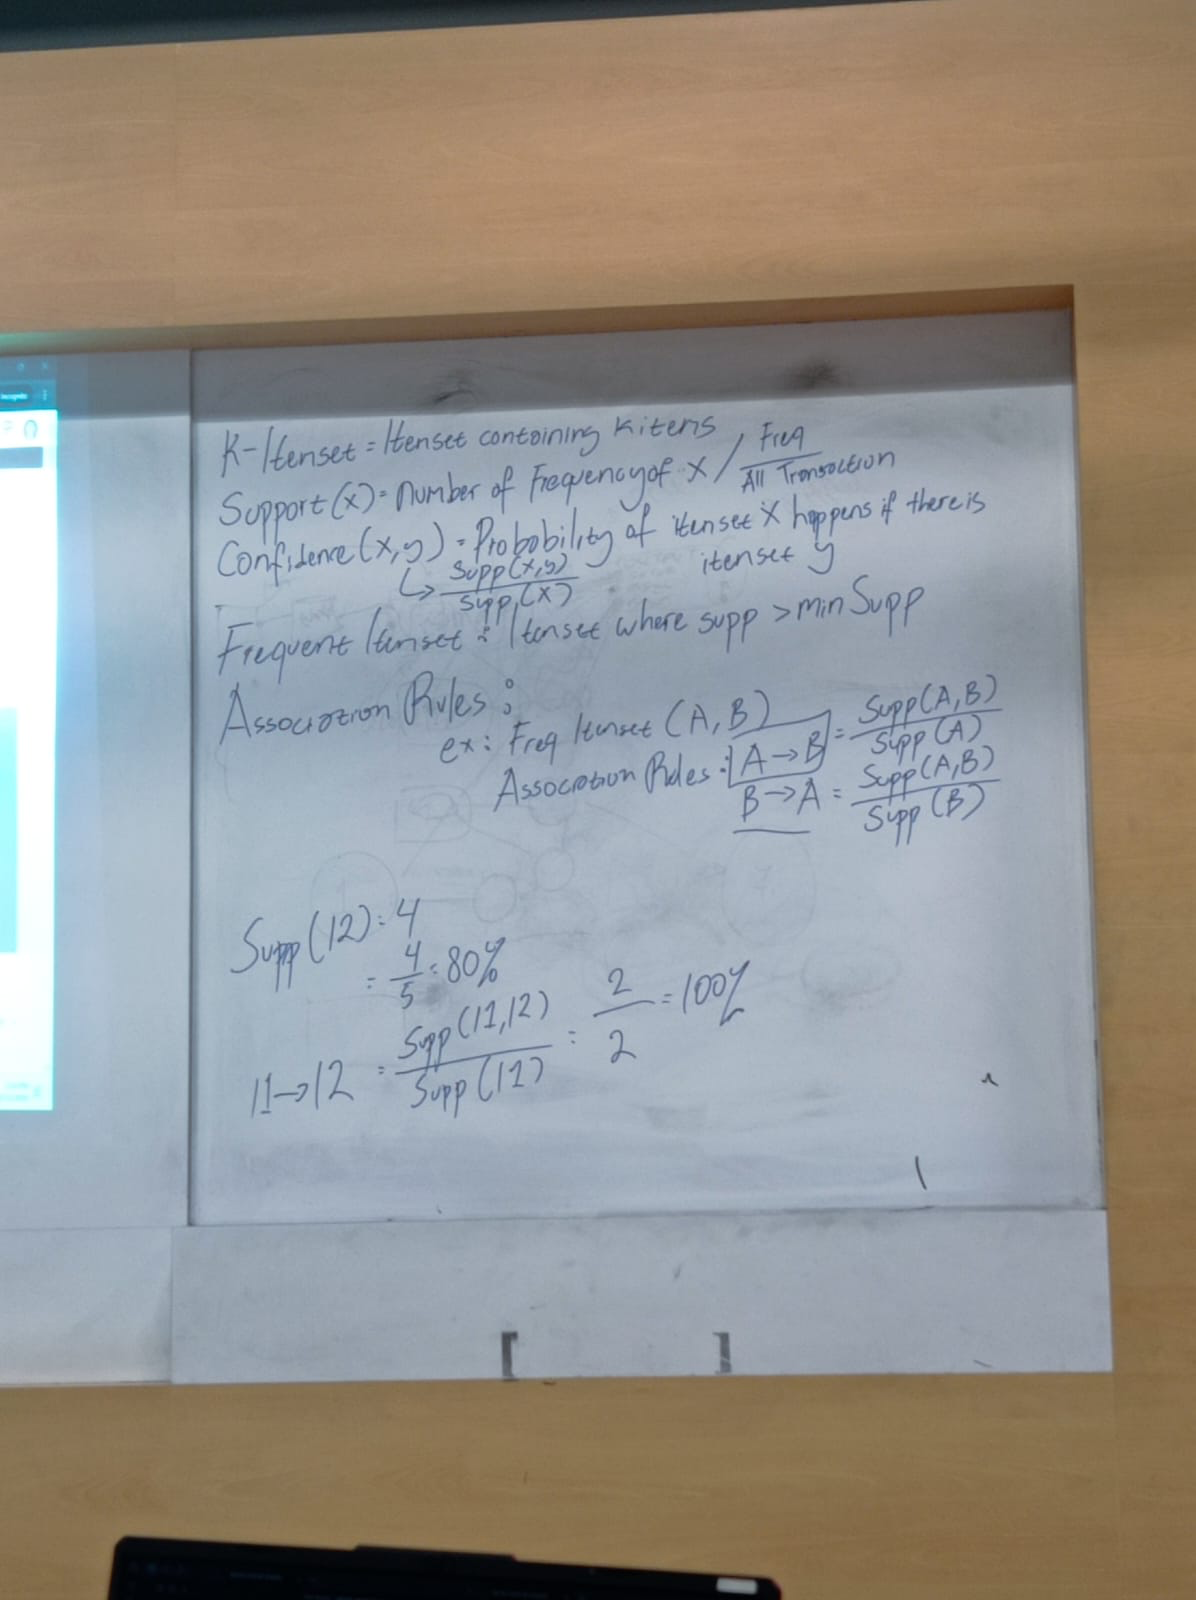 K-Itemset = Itemset containing K items
Support (x) = Number of Frequency of x / Freq / All Transaction
Confidence (x,y) = Probability of itemset X happens if there is itemset y
↳ Supp(x,y) / Supp(x)
Frequent Itemset : Itemset where supp > min Supp
Association Rules :
ex : Freq Itemset (A, B)
Association Rules : A → B = Supp(A,B) / Supp(A)
B → A = Supp(A,B) / Supp(B)
Supp(12) = 4
= 4/5 = 80%
11 → 12 = Supp(11,12) / Supp(11) = 2/2 = 100%
[ ]